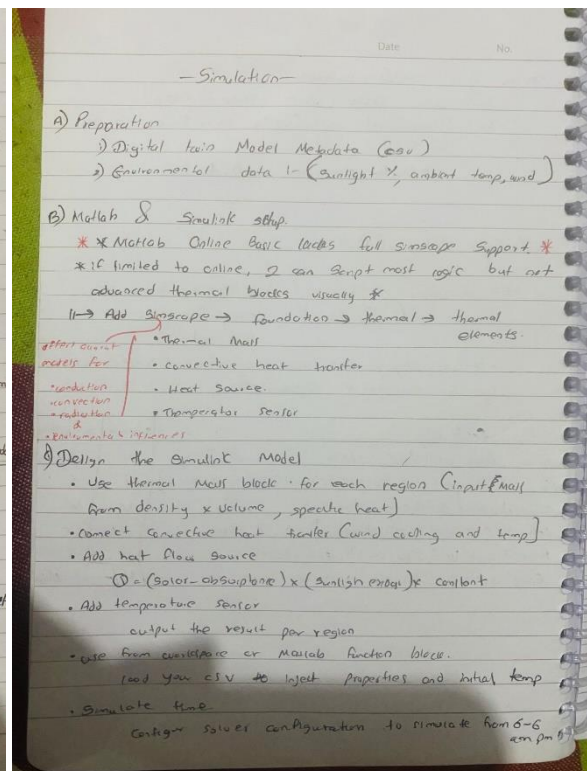 Date No.
-Simulation-
A) Preparation
1) Digital twin Model Metadata (csv)
2) Environmental data :- (sunlight %, ambient temp, wind)
B) Matlab & Simulink setup.
* * Matlab Online Basic lacks full simscape support. *
* if limited to online, I can script most logic but not
advanced thermal blocks visually *
1→ Add Simscape → foundation → thermal → thermal
elements.
• Thermal Mass
models for
• convective heat transfer
• conduction
• convection
• Heat source.
• radiation
&
• Themperator sensor
• Enviromental influences
C) Design the Simulink Model
• Use thermal Mass block for each region (input Mass
from density x volume, specific heat)
• connect convective heat transfer (wind cooling and temp)
• Add heat flow source
Q = (solar-absorptance) x (sunligh) x constant
• Add temperature sensor
output the result per region
• use from workspace or Matlab function block.
load you csv to inject properties and initial temp
• Simulate time
Configur solver configuration to simulate from 6-6
am pm